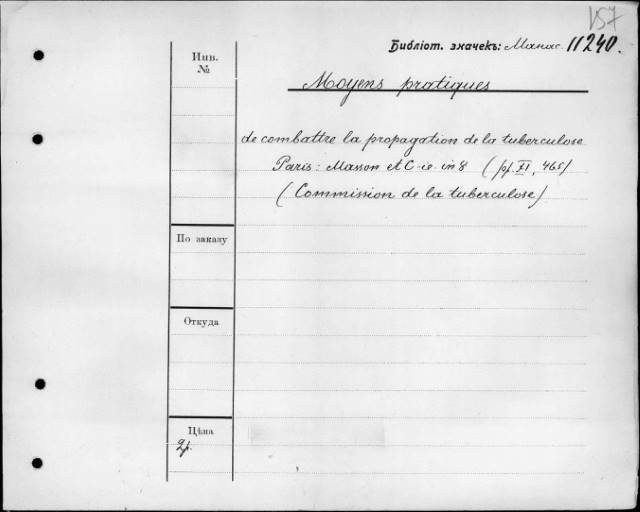 157
Библіот. значекъ: Манас. 11240.
Инв.
№
Moyens pratiques
de combattre la propagation de la tuberculose
Paris: Masson et C-ie in 8 (pf. XI, 465)
(Commission de la tuberculose)
По заказу
Откуда
Цѣна
2р.